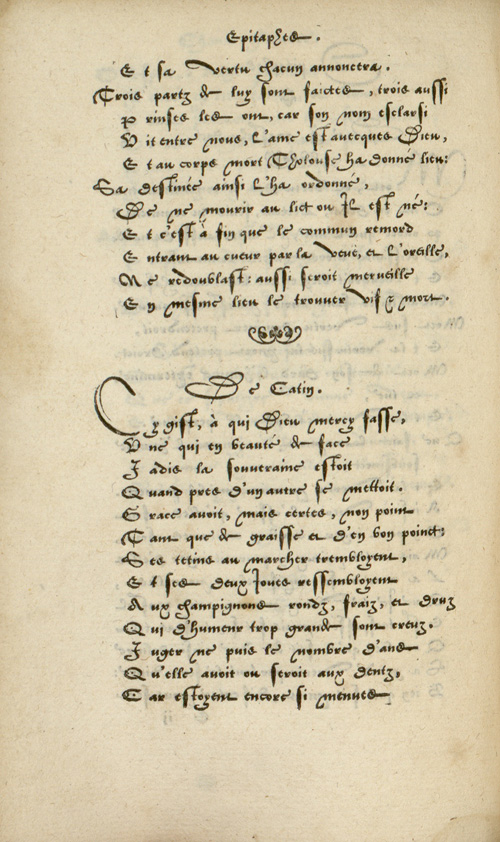 Epitaphes.
Et sa vertu chacun annoncera.
Trois partz de luy sont faictes, trois aussi
Prinses les ont, car son nom esclarsi
Vit entre nous, L'ame est avecques Dieu,
Et au corps mort Tholouse ha donné lieu:
Sa destinée ainsi L'ha ordonné,
De ne mourir au lict ou Il est né:
Et c'est à fin que le commun remord
Entrant au cueur par la veue, et L'oreille,
Ne redoublast: aussi seroit merveille
En mesme lieu le trouver vif & mort.
De Catin.
Cy gist, à qui Dieu mercy fasse,
Vne qui en beauté de face
Iadis la souveraine estoit
Quand pres d'un autre se mettoit.
Grace avoit, mais certes, non point
Tant que de graisse et d'en bon poinct:
Ses tetins au marcher trembloyent,
Et ses deux Joues ressembloyent
Aux champignons rondz, fraiz, et druz
Qui d'humeur trop grande sont creuz.
Iuger ne puis le nombre d'ans
Qu'elle avoit ou seroit aux dentz,
Car estoyent encore si menues